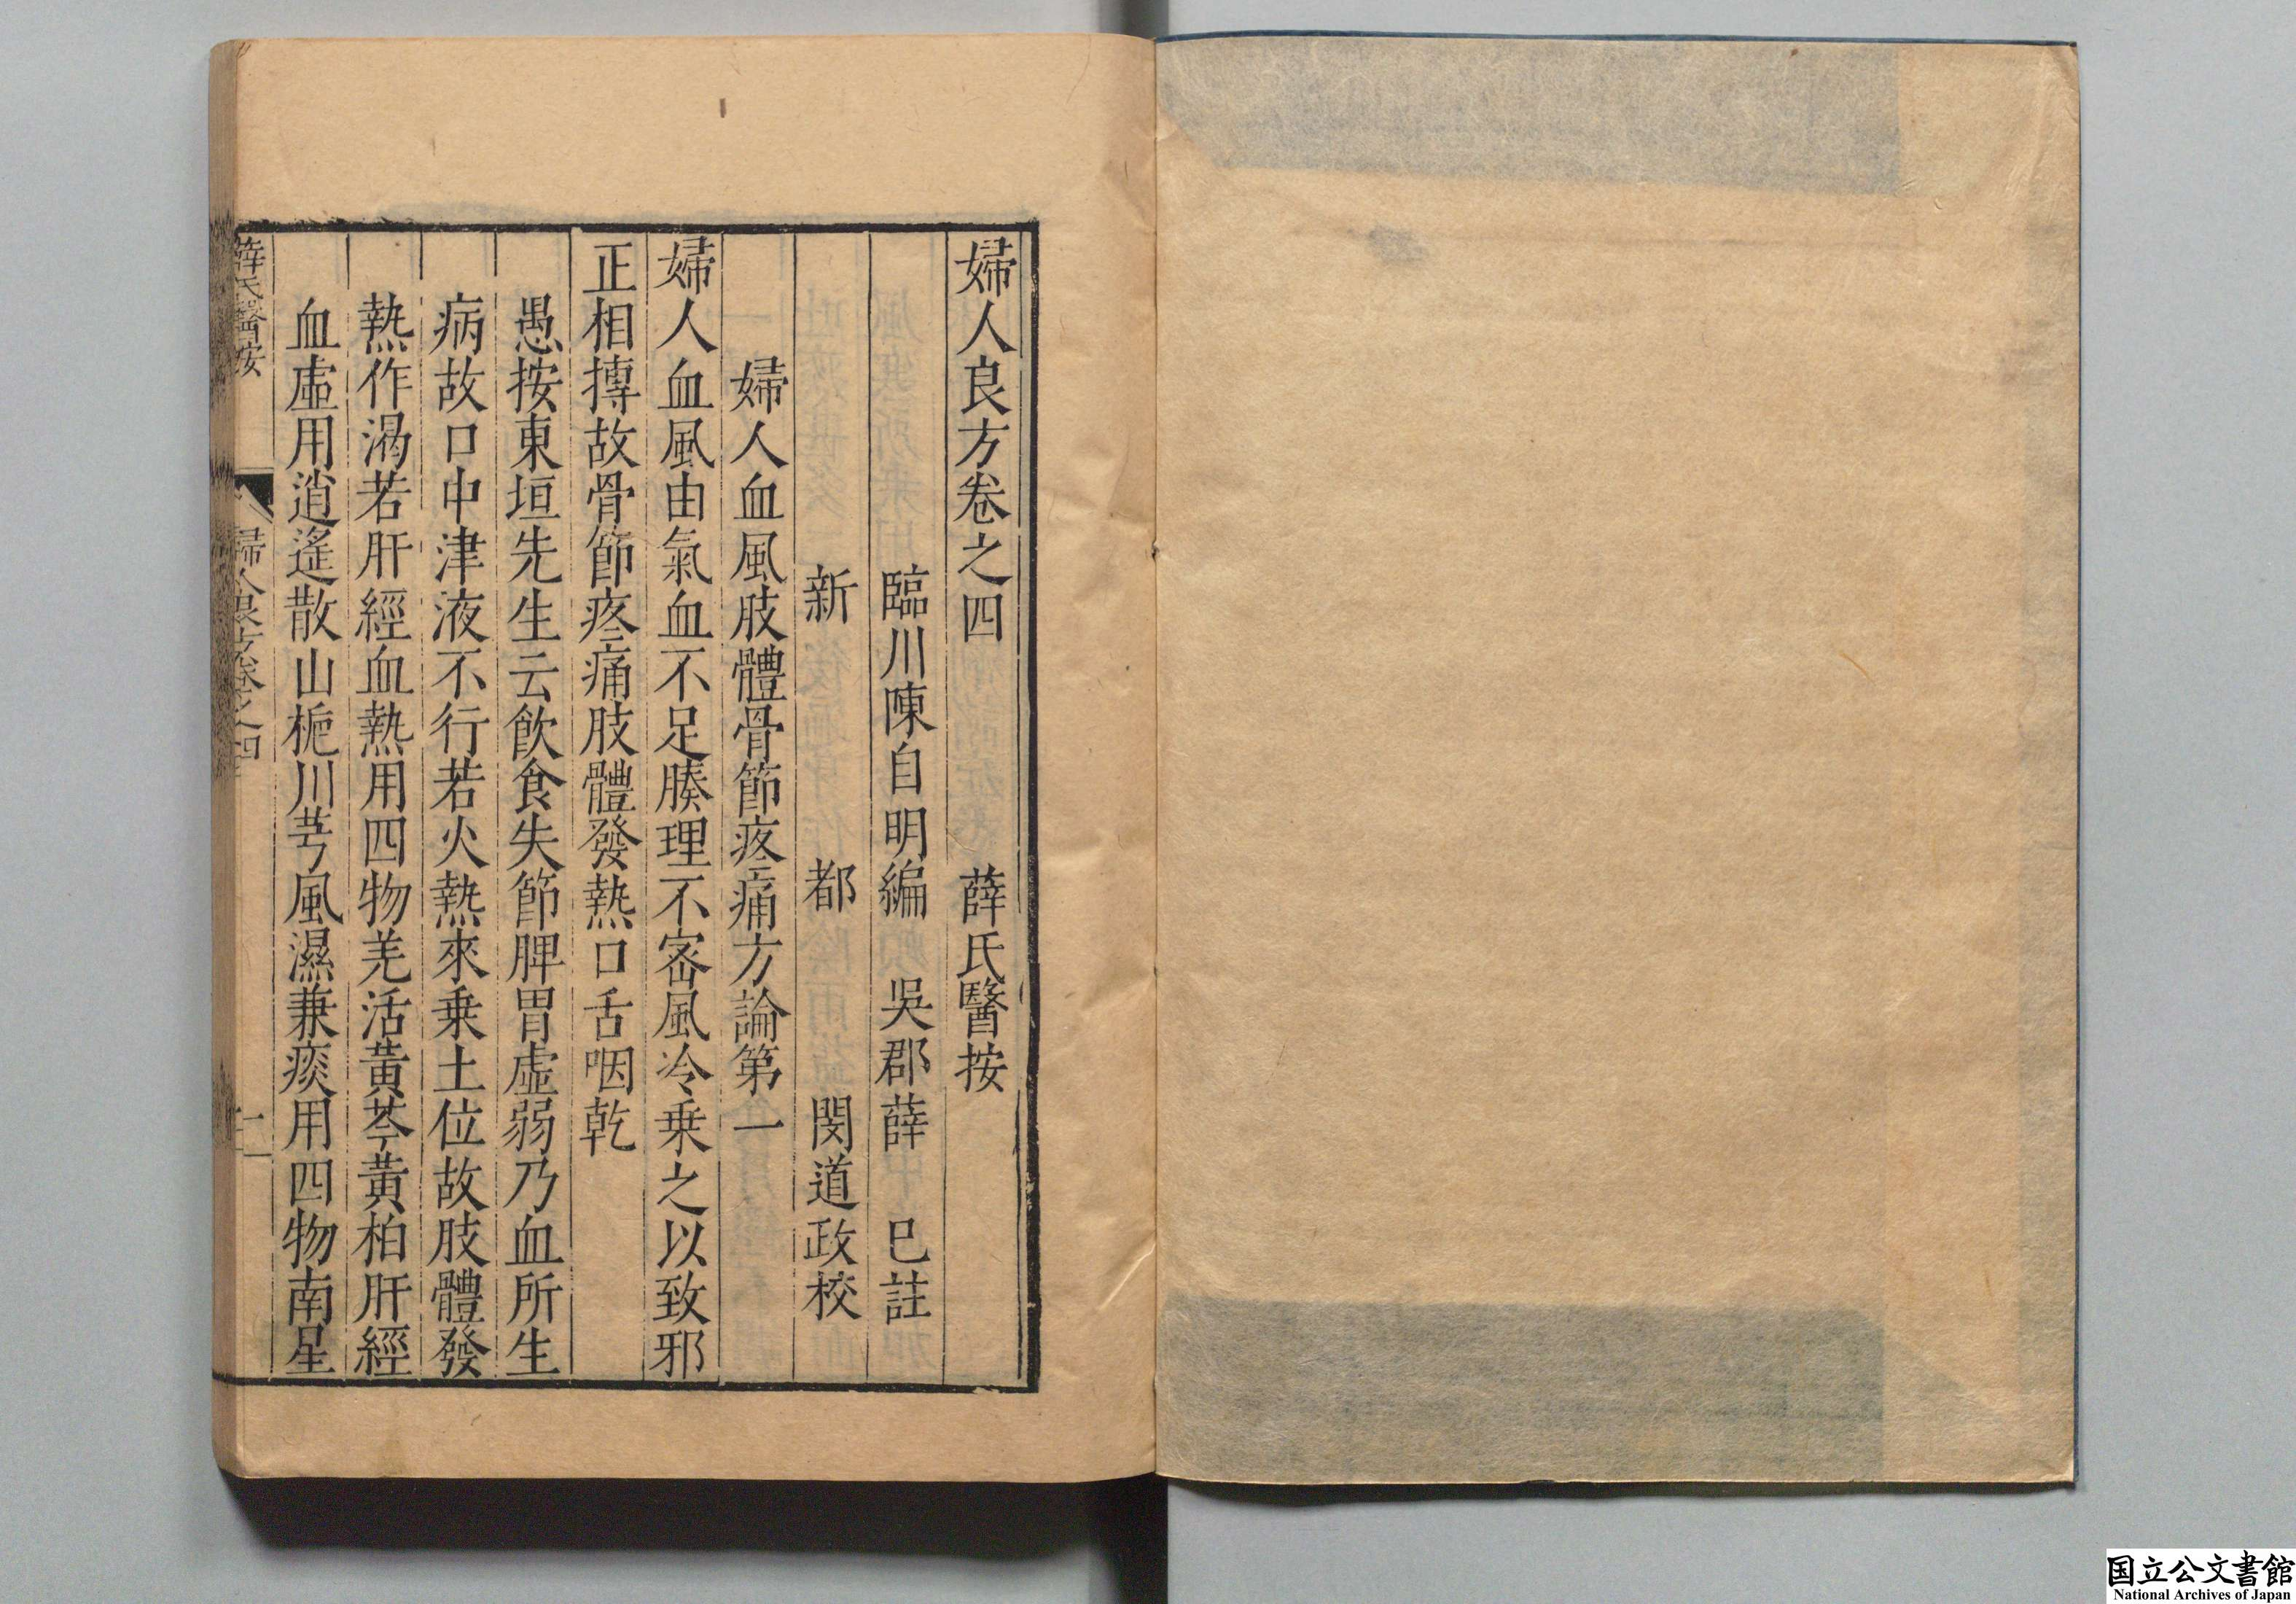 婦人良方卷之四　薛氏醫按
臨川陳自明編　吳郡薛　已註
新　都　閔道政校
婦人血風肢體骨節疼痛方論第一
婦人血風由氣血不足腠理不宻風冷乗之以致邪
正相搏故骨節疼痛肢體發熱口舌咽乾
愚按東垣先生云飲食失節脾胃虛弱乃血所生
病故口中津液不行若火熱來乗土位故肢體發
熱作渴若肝經血熱用四物羌活黃芩黃柏肝經
血虛用逍遙散山梔川芎風濕兼痰用四物南星
薛氏醫按　婦人良方卷之四　一
国立公文書館
National Archives of Japan